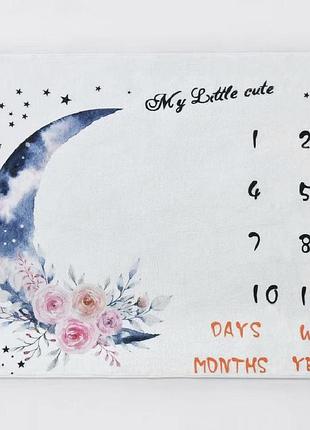 My Little cute
1 2
4 5
7 8
10 1
DAYS W
MONTHS YE